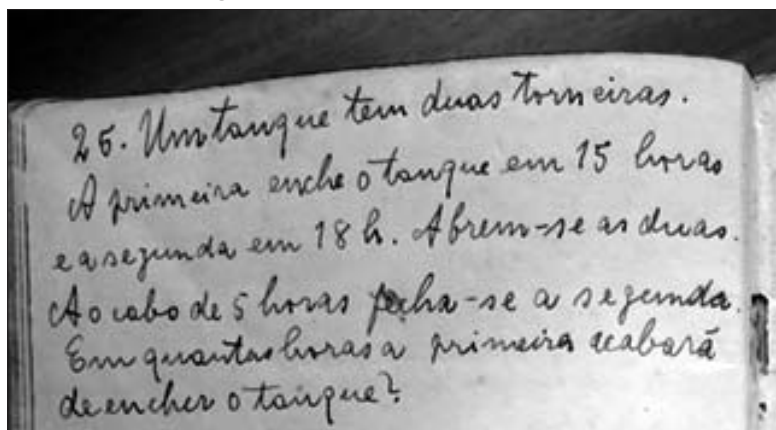 26. Um tanque tem duas torneiras.
A primeira enche o tanque em 15 horas
e a segunda em 18 h. Abrem-se as duas.
Ao cabo de 5 horas fecha-se a segunda.
Em quantas horas a primeira acabará
de encher o tanque?